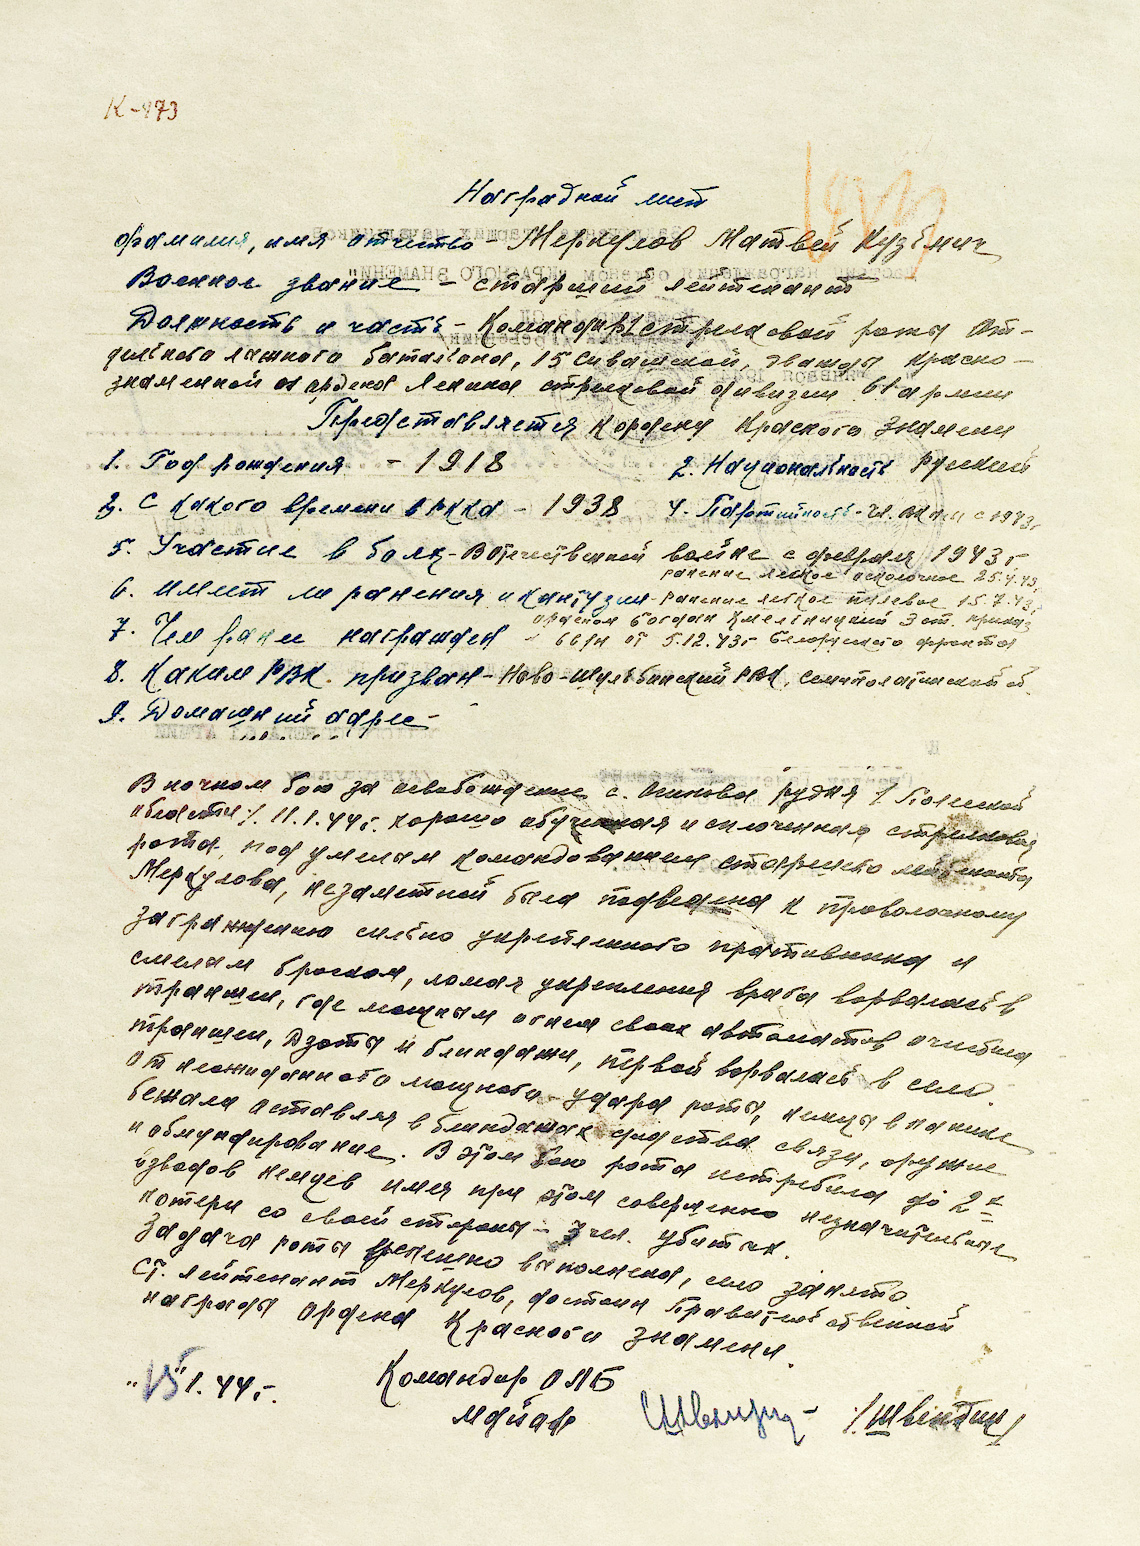 К-473
Наградной лист
Фамилия, имя отчество - Меркулов Матвей Кузьмич
Военное звание - старший лейтенант
Должность и часть - Командир 1 стрелковой роты от-
дельного лыжного батальона, 15 Сивашской, дважды Красно-
знаменной ордена Ленина стрелковой дивизии 61 армии
Представляется к ордену Красного Знамени
1. Год рождения - 1918 2. Национальность русский
3. С какого времени в РККА - 1938 4. Партийность - чл. ВКП(б) с 1943г.
5. Участие в боях - В отечественной войне с февраля 1943 г.
ранение легкое осколочное 25.4.43
6. Имеет ли ранения и контузии - ранение легкое пулевое 15.7.43г.
орденом Богдан Хмельницкий 3 ст. приказ
7. Чем ранее награжден - 661н от 5.12.43г Белорусского фронта
8. Каким РВК призван - Ново-Шульбинский РВК, Семипалатинской об.
9. Домашний адрес -
В ночном бою за освобождение с. Осипова Рудня /Полесской
области/ 11.1.44г. хорошо обученная и сплоченная стрелковая
рота, под умелым командованием старшего лейтенанта
Меркулова, незаметной была подведена к проволочному
заграждению сильно укрепленного противника и
смелым броском, ломая укрепления врага ворвалась в
траншеи, где мощным огнем своих автоматов очистила
траншеи, дзоты и блиндажи, первой ворвалась в село.
От неожиданного мощного удара роты, немцы в панике
бежала оставляя в блиндажах средства связи, оружие
и обмундирование. В этом бою рота истребила до 2х
взводов немцев имея при этом совершенно незначительные
потери со своей стороны - 3 чел. убитых.
Задача роты успешно выполнена, село занято
Ст. лейтенант Меркулов, достоин Правительственной
награды ордена Красного Знамени.
"15" 1.44г. Командир ОЛБ
Майор /Швендик/